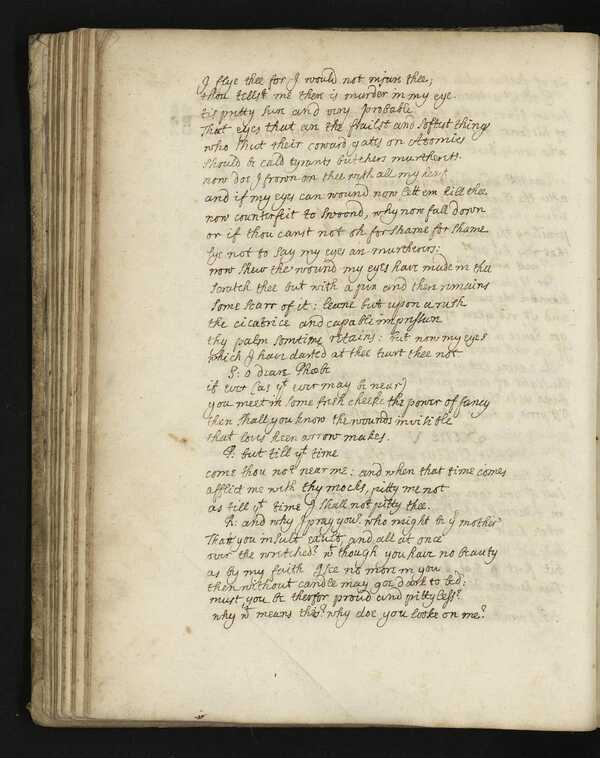 I flye thee for I would not injure thee;
thou tellst me there is murder in my eye
tis pretty sure and very probable
That eyes that are the frailst and softest things
who shut their coward gates on Atomies
should be cald tyrants butchers murtherers.
now doe I frown on thee with all my heart
and if my eyes can wound now lett em kill thee
now counterfeit to swoond, why now fall down
or if thou canst not oh for shame for shame
lye not to say my eyes are murtherers:
now shew the wound my eyes have made in thee
scratch thee but with a pin and there remains
some scarr of it: leane but upon a rush
the cicatrice and capable impressure
thy palm somtime retains: but now my eyes
which I have darted at thee hurt thee not
S: o deare Phoebe
if ever (as yt ever may be near)
you meet in some fresh cheeke the power of fancy
then shall you know the wounds invisible
that loves keen arrow makes.
P: but till yt time
come thou not near me: and when that time comes
afflict me with thy mocks, pitty me not
as till yt time I shall not pitty thee.
R: and why I pray you? who might be yr mother
That you insult exult and all at once
over the wretched? wt though you have no beauty
as by my faith I see no more in you
then without candle may goe dark to bed;
must you be therfor proud and pittyless?
why wt means this? why doe you looke on me?